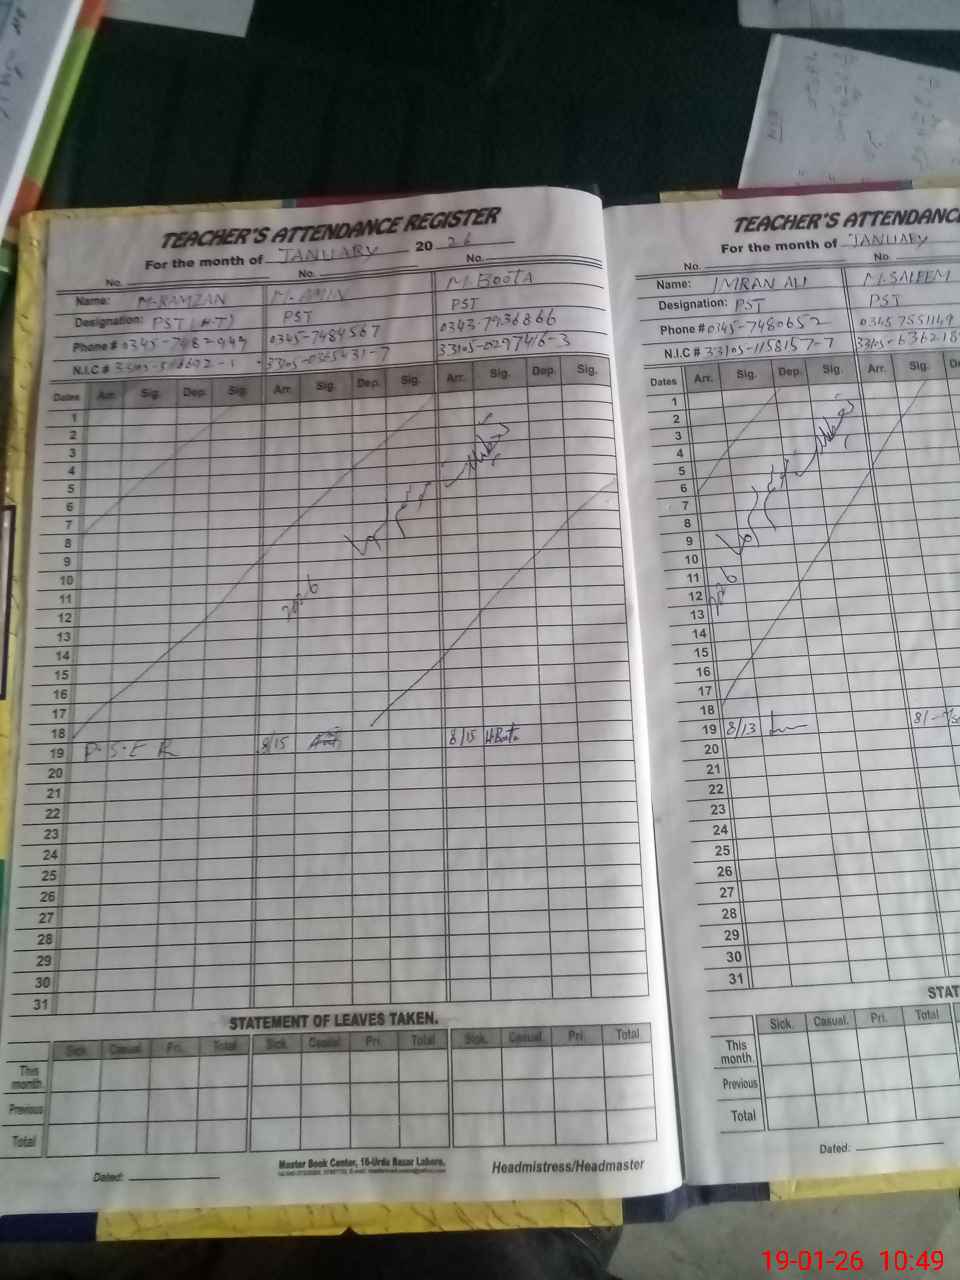 TEACHER'S ATTENDANCE REGISTER
For the month of JANUARY 2026
No. No. No.
Name: M.RAMZAN M.AMIN M.BOOTA
Designation: PST (H.T) PST PST
Phone # 0345-7482949 0345-7484567 0343-7936866
N.I.C # 33105-0365431-7 33105-0297416-3
Dates Arr. Sig. Dep. Sig. Arr. Sig. Dep. Sig. Arr. Sig. Dep. Sig.
1
2
3
4
5
6
7
8
9
10
11
12
13
14
15
16
17
18
19 P.S.E.R 8/15 8/15 M.Boota
20
21
22
23
24
25
26
27
28
29
30
31
2026
STATEMENT OF LEAVES TAKEN.
Sick. Casual. Pri. Total Sick. Casual. Pri. Total Sick. Casual. Pri. Total
This month.
Previous
Total
Dated:
Master Book Center, 16-Urdu Bazar Lahore.
Headmistress/Headmaster
TEACHER'S ATTENDANCE
For the month of JANUARY
No. No.
Name: IMRAN ALI M.SALEEM
Designation: PST PST
Phone # 0345-7480652 0345 7551149
N.I.C # 33105-1158157-7 33105-636218
Dates Arr. Sig. Dep. Sig. Arr. Sig.
1
2
3
4
5
6
7
8
9
10
11
12
13
14
15
16
17
18
19 8/13 8/
20
21
22
23
24
25
26
27
28
29
30
31
2026
STAT
Sick. Casual. Pri. Total
This month.
Previous
Total
Dated:
19-01-26 10:49